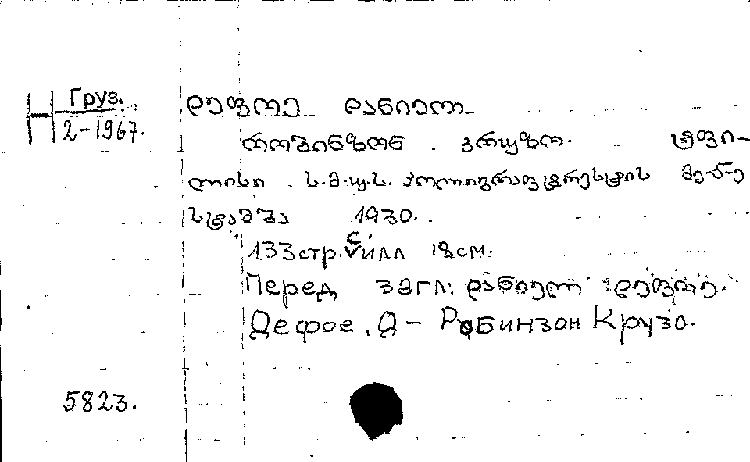 Груз.
Н 2-1967.
დეფოე დანიელ
რობინზონ კრუზო. ტფი-
ლისი ს.მ.უ.ს. პოლიგრაფტრესტის მე-5-ე
სტამბა 1930.
133стр. с илл 18см.
Перед загл: დანიელ დეფოე.
Дефое, Д - Робинзон Крузо.
5823.